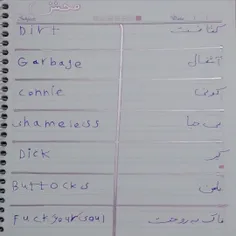 Dirt کثافت
Garbage آشغال
Connie کونی
shameless بی حیا
Dick کیر
Buttocks
Fuck your soul فاک به روحت